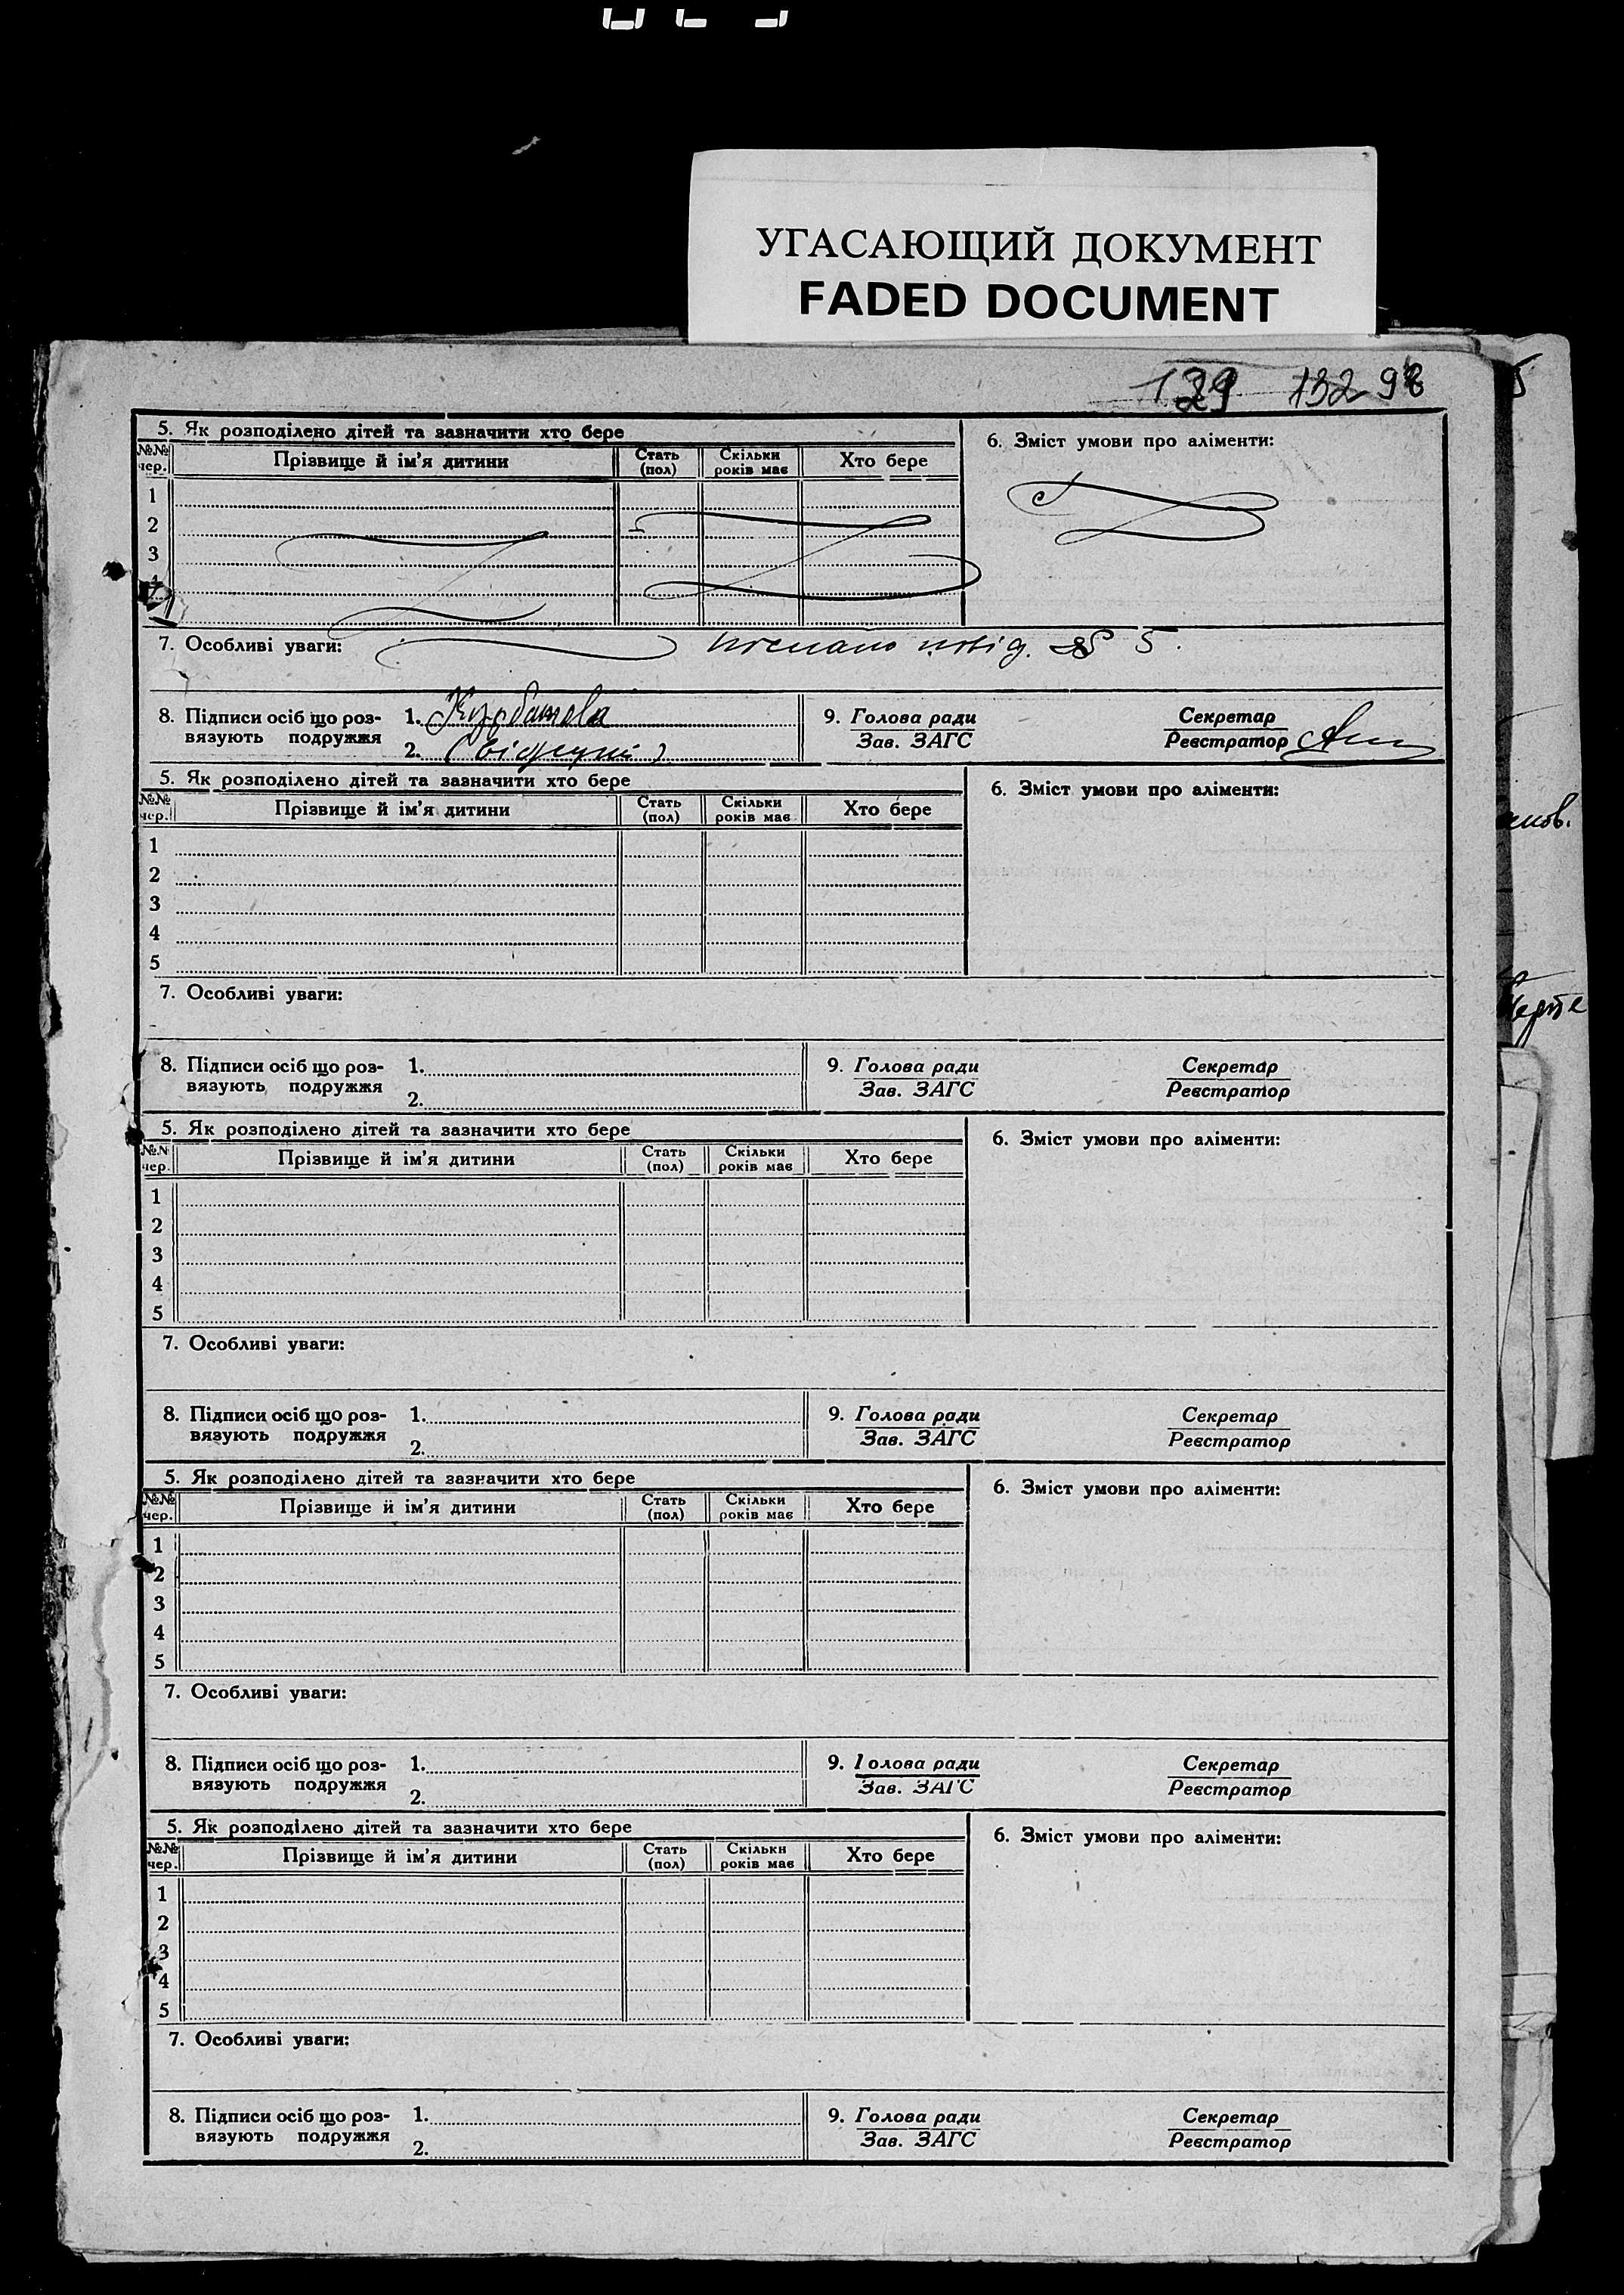 УГАСАЮЩИЙ ДОКУМЕНТ
FADED DOCUMENT
129 132 98
5. Як розподілено дітей та зазначити хто бере
6. Зміст умови про аліменти:
№№ чер. Прізвище й ім'я дитини Стать (пол) Скільки років має Хто бере
1
2
3
7. Особливі уваги: послано повід. № 5.
8. Підписи осіб що роз-вязують подружжя
1. Курбатова
2. (відсутній)
9. Голова ради
Зав. ЗАГС
Секретар
Реєстратор
5. Як розподілено дітей та зазначити хто бере
6. Зміст умови про аліменти:
№№ чер. Прізвище й ім'я дитини Стать (пол) Скільки років має Хто бере
1
2
3
4
5
7. Особливі уваги:
8. Підписи осіб що роз-вязують подружжя
1.
2.
9. Голова ради
Зав. ЗАГС
Секретар
Реєстратор
5. Як розподілено дітей та зазначити хто бере
6. Зміст умови про аліменти:
№№ чер. Прізвище й ім'я дитини Стать (пол) Скільки років має Хто бере
1
2
3
4
5
7. Особливі уваги:
8. Підписи осіб що роз-вязують подружжя
1.
2.
9. Голова ради
Зав. ЗАГС
Секретар
Реєстратор
5. Як розподілено дітей та зазначити хто бере
6. Зміст умови про аліменти:
№№ чер. Прізвище й ім'я дитини Стать (пол) Скільки років має Хто бере
1
2
3
4
5
7. Особливі уваги:
8. Підписи осіб що роз-вязують подружжя
1.
2.
9. Голова ради
Зав. ЗАГС
Секретар
Реєстратор
5. Як розподілено дітей та зазначити хто бере
6. Зміст умови про аліменти:
№№ чер. Прізвище й ім'я дитини Стать (пол) Скільки років має Хто бере
1
2
3
4
5
7. Особливі уваги:
8. Підписи осіб що роз-вязують подружжя
1.
2.
9. Голова ради
Зав. ЗАГС
Секретар
Реєстратор